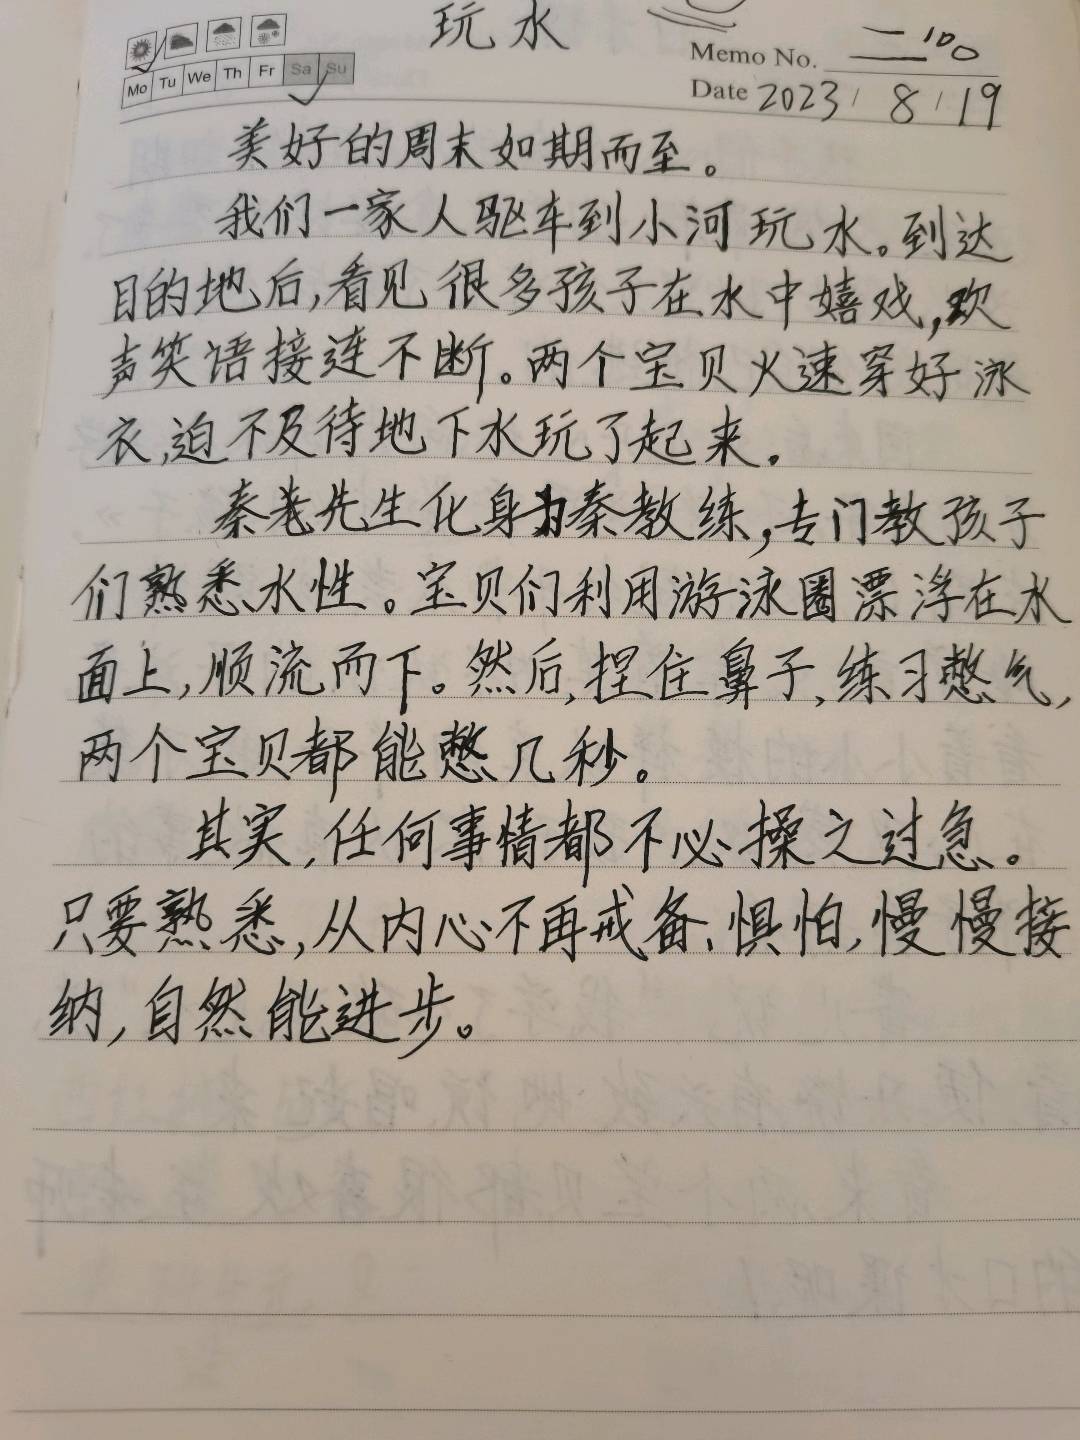 玩水
Memo No. 二100
Mo Tu We Th Fr Sa Su
Date 2023 / 8 / 19
美好的周末如期而至。
我们一家人驱车到小河玩水。到达
目的地后,看见很多孩子在水中嬉戏,欢
声笑语接连不断。两个宝贝火速穿好泳
衣,迫不及待地下水玩了起来。
秦老先生化身为秦教练,专门教孩子
们熟悉水性。宝贝们利用游泳圈漂浮在水
面上,顺流而下。然后,捏住鼻子,练习憋气,
两个宝贝都能憋几秒。
其实,任何事情都不必操之过急。
只要熟悉,从内心不再戒备、惧怕,慢慢接
纳,自然能进步。